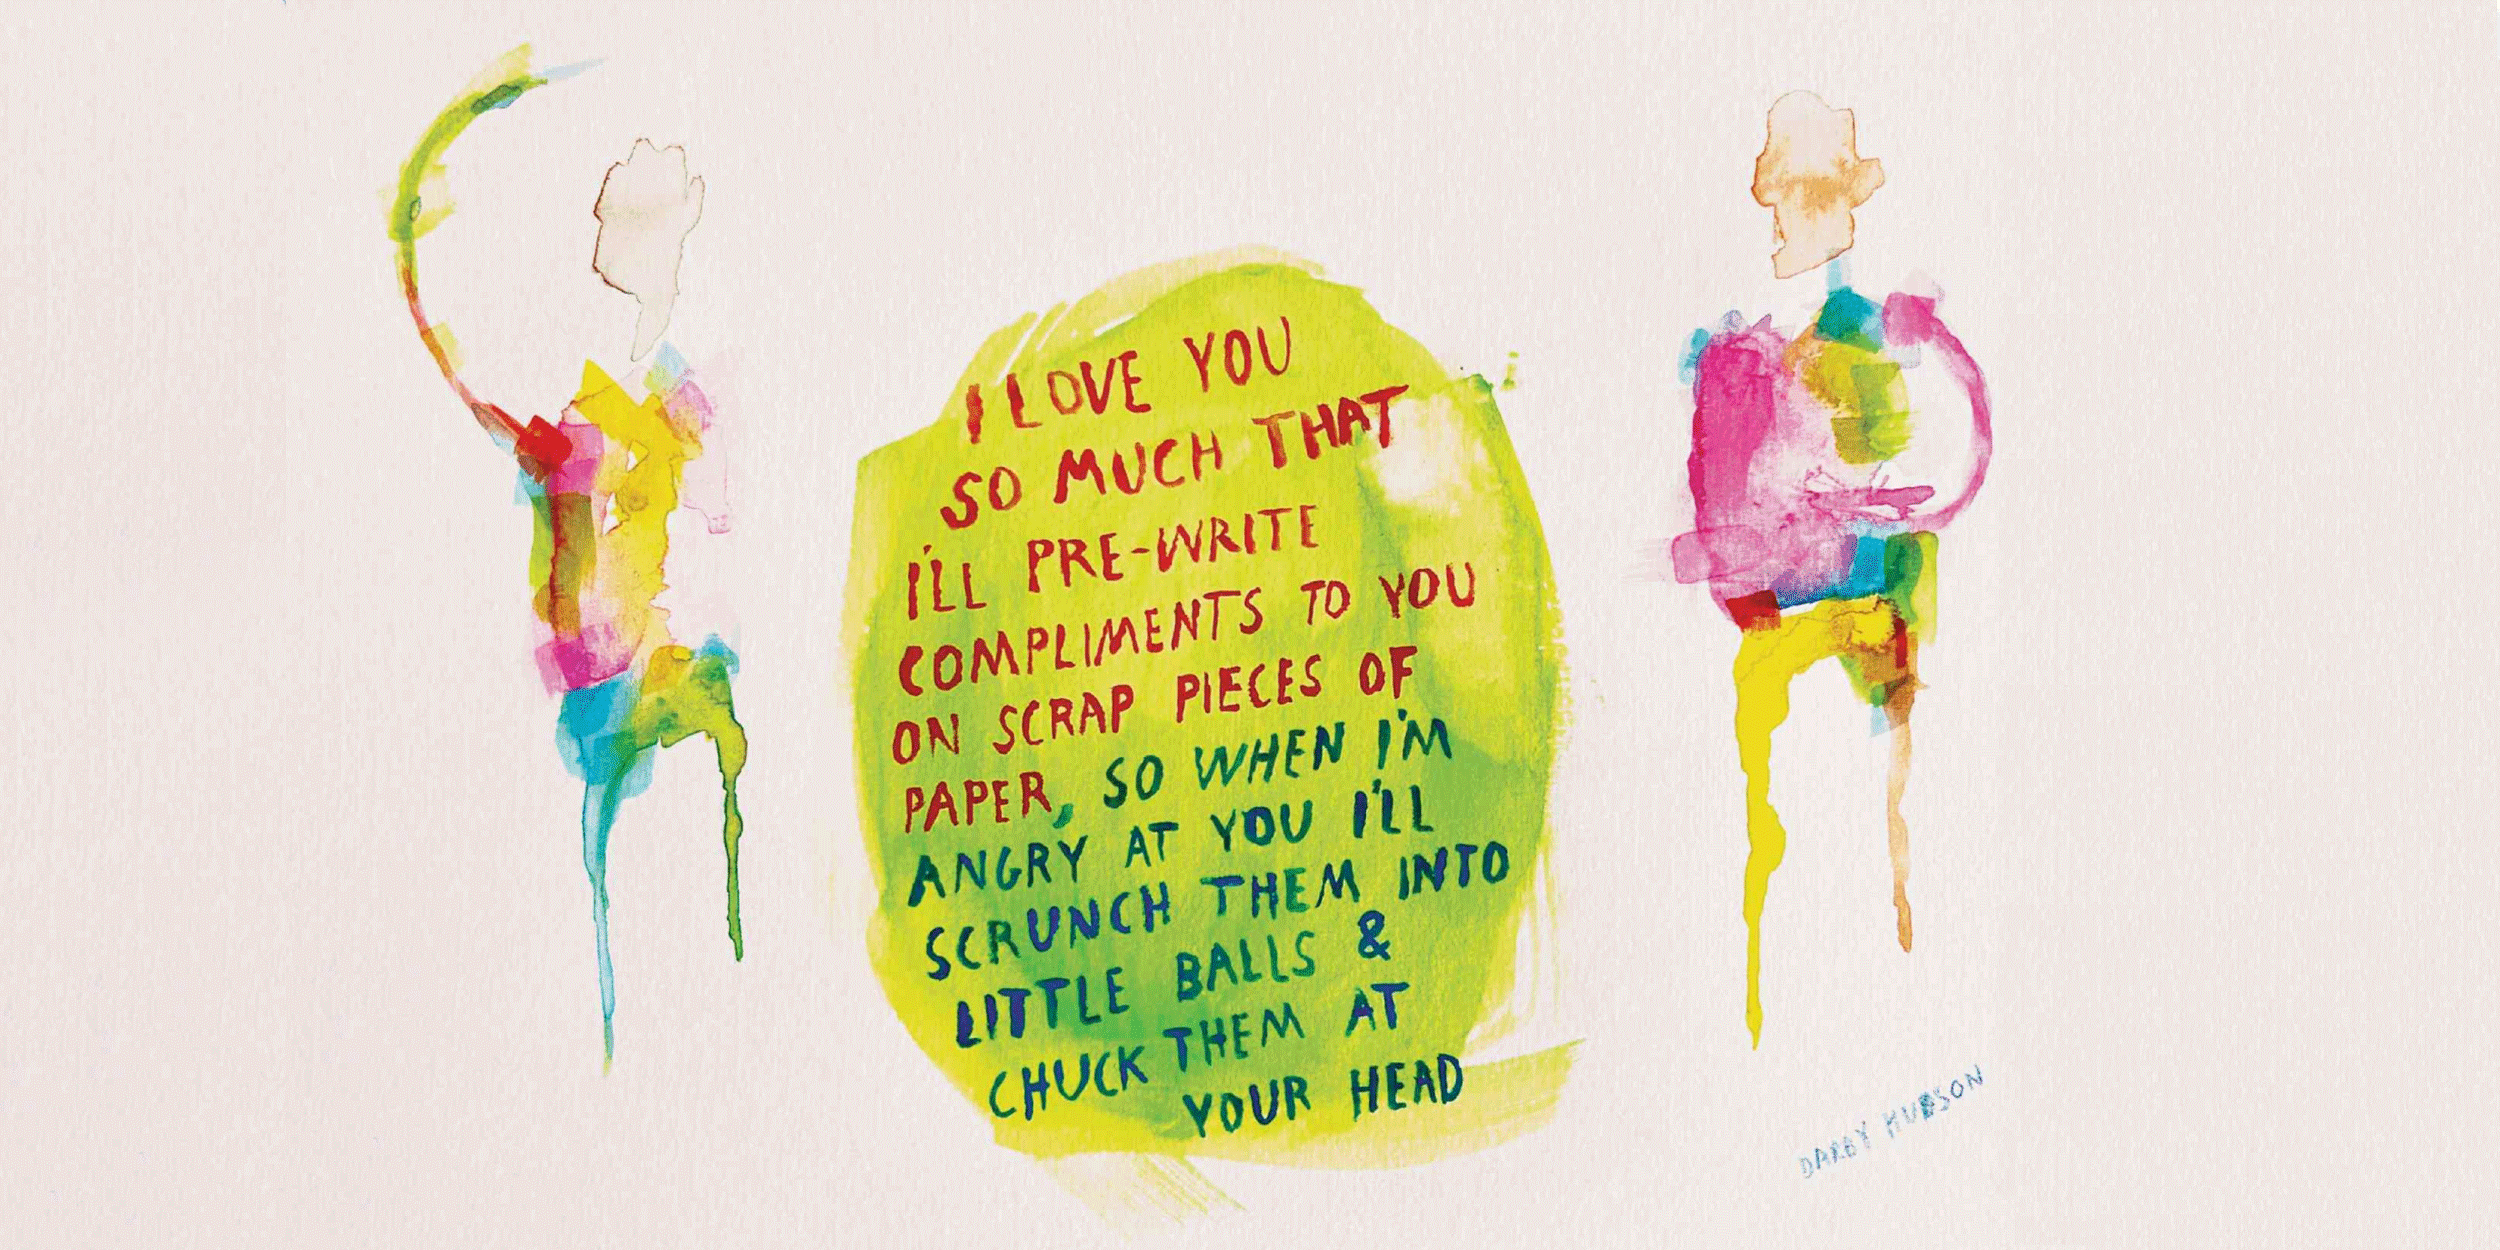 I LOVE YOU
SO MUCH THAT
I'LL PRE-WRITE
COMPLIMENTS TO YOU
ON SCRAP PIECES OF
PAPER, SO WHEN I'M
ANGRY AT YOU I'LL
SCRUNCH THEM INTO
LITTLE BALLS &
CHUCK THEM AT
YOUR HEAD
DARBY HUDSON